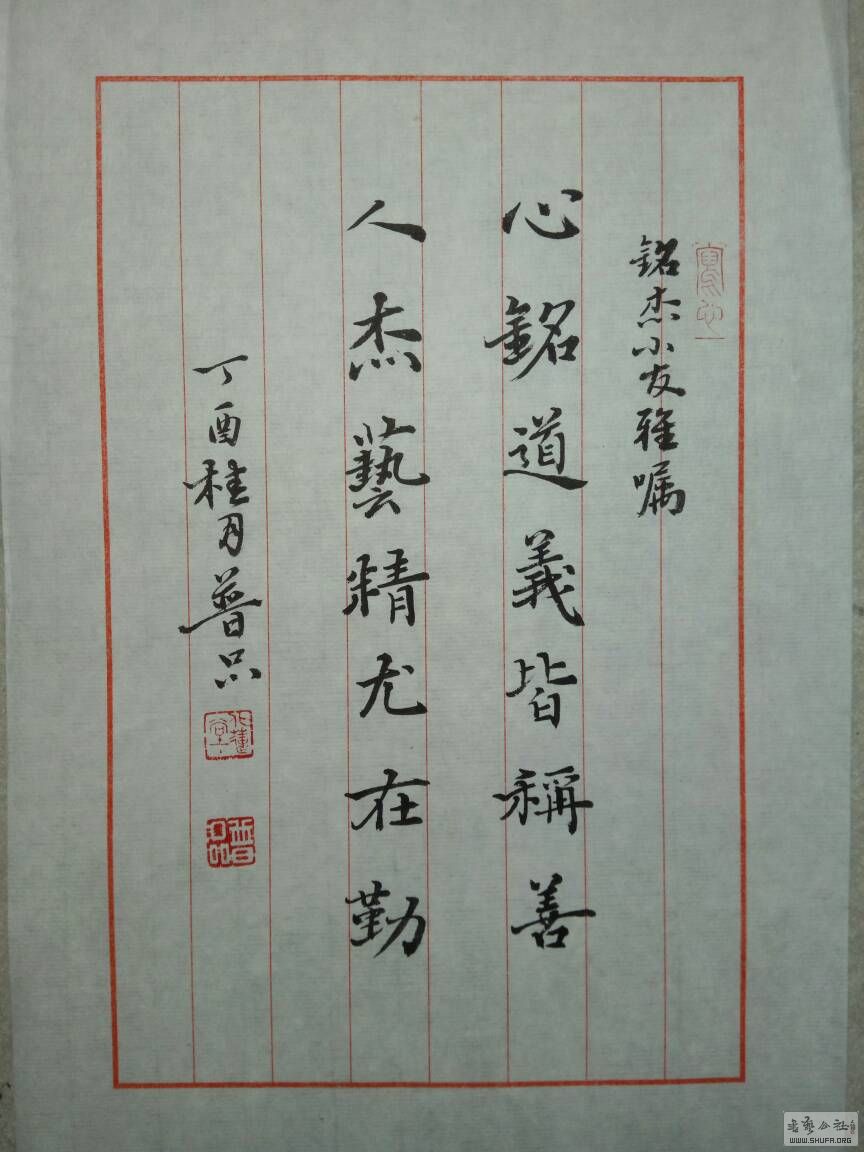 銘杰小友雅嘱
心銘道義皆稱善
人杰藝精尤在勤
丁酉桂月普品
普品
书艺公社
WWW.SHUFA.ORG